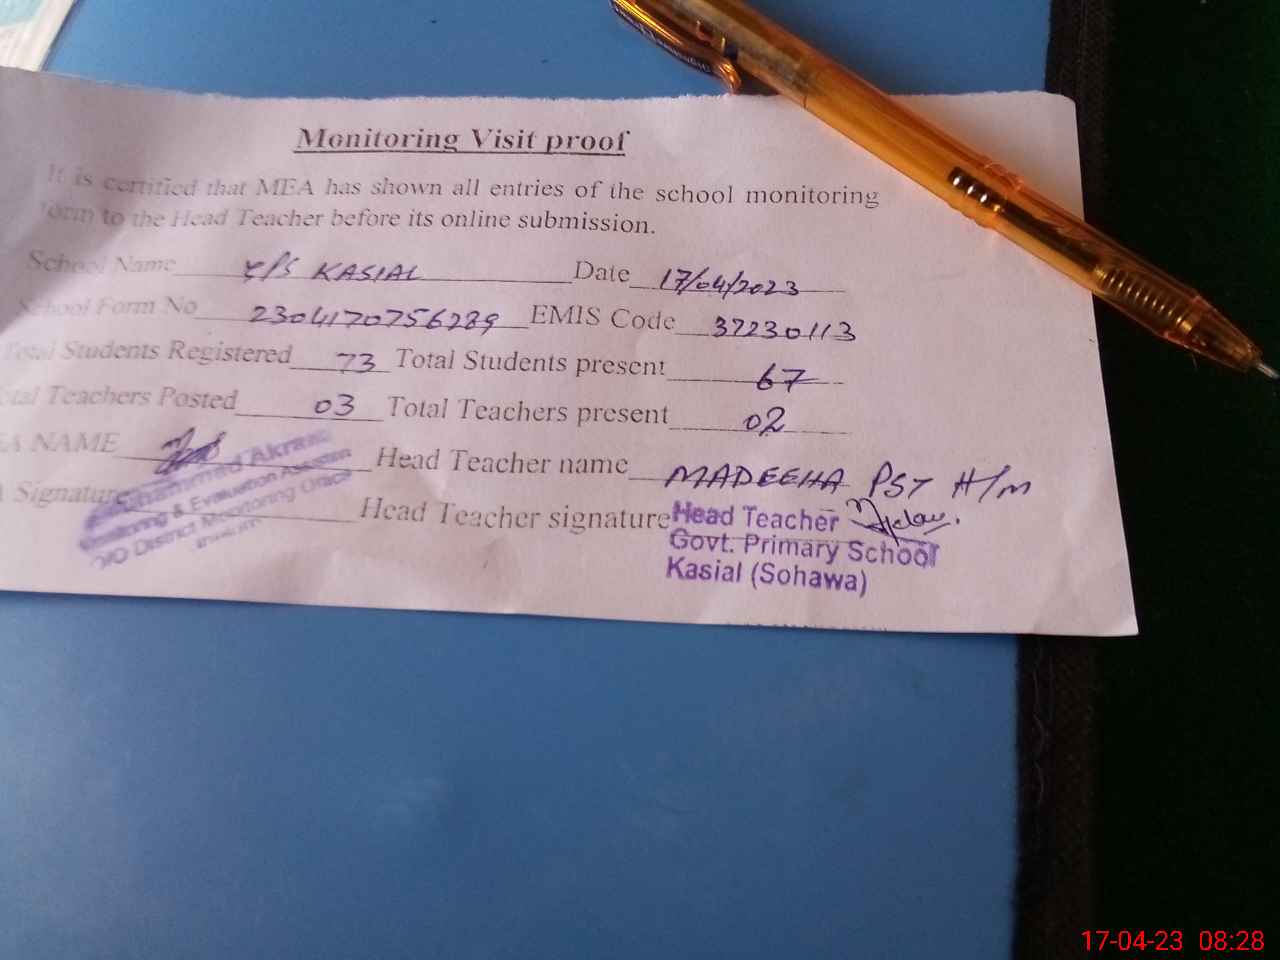 Monitoring Visit proof
It is certified that MEA has shown all entries of the school monitoring
form to the Head Teacher before its online submission.
School Name KASIAL Date 17/04/2023
School Form No 2304170756289 EMIS Code 37230113
Total Students Registered 73 Total Students present 67
Total Teachers Posted 03 Total Teachers present 02
EA NAME Head Teacher name MADEEHA PST H/M
Signature Head Teacher signature
Muhammad Akram
Monitoring & Evaluation Assistant
O/O District Monitoring Office
Head Teacher
Govt. Primary School
Kasial (Sohawa)
17-04-23 08:28